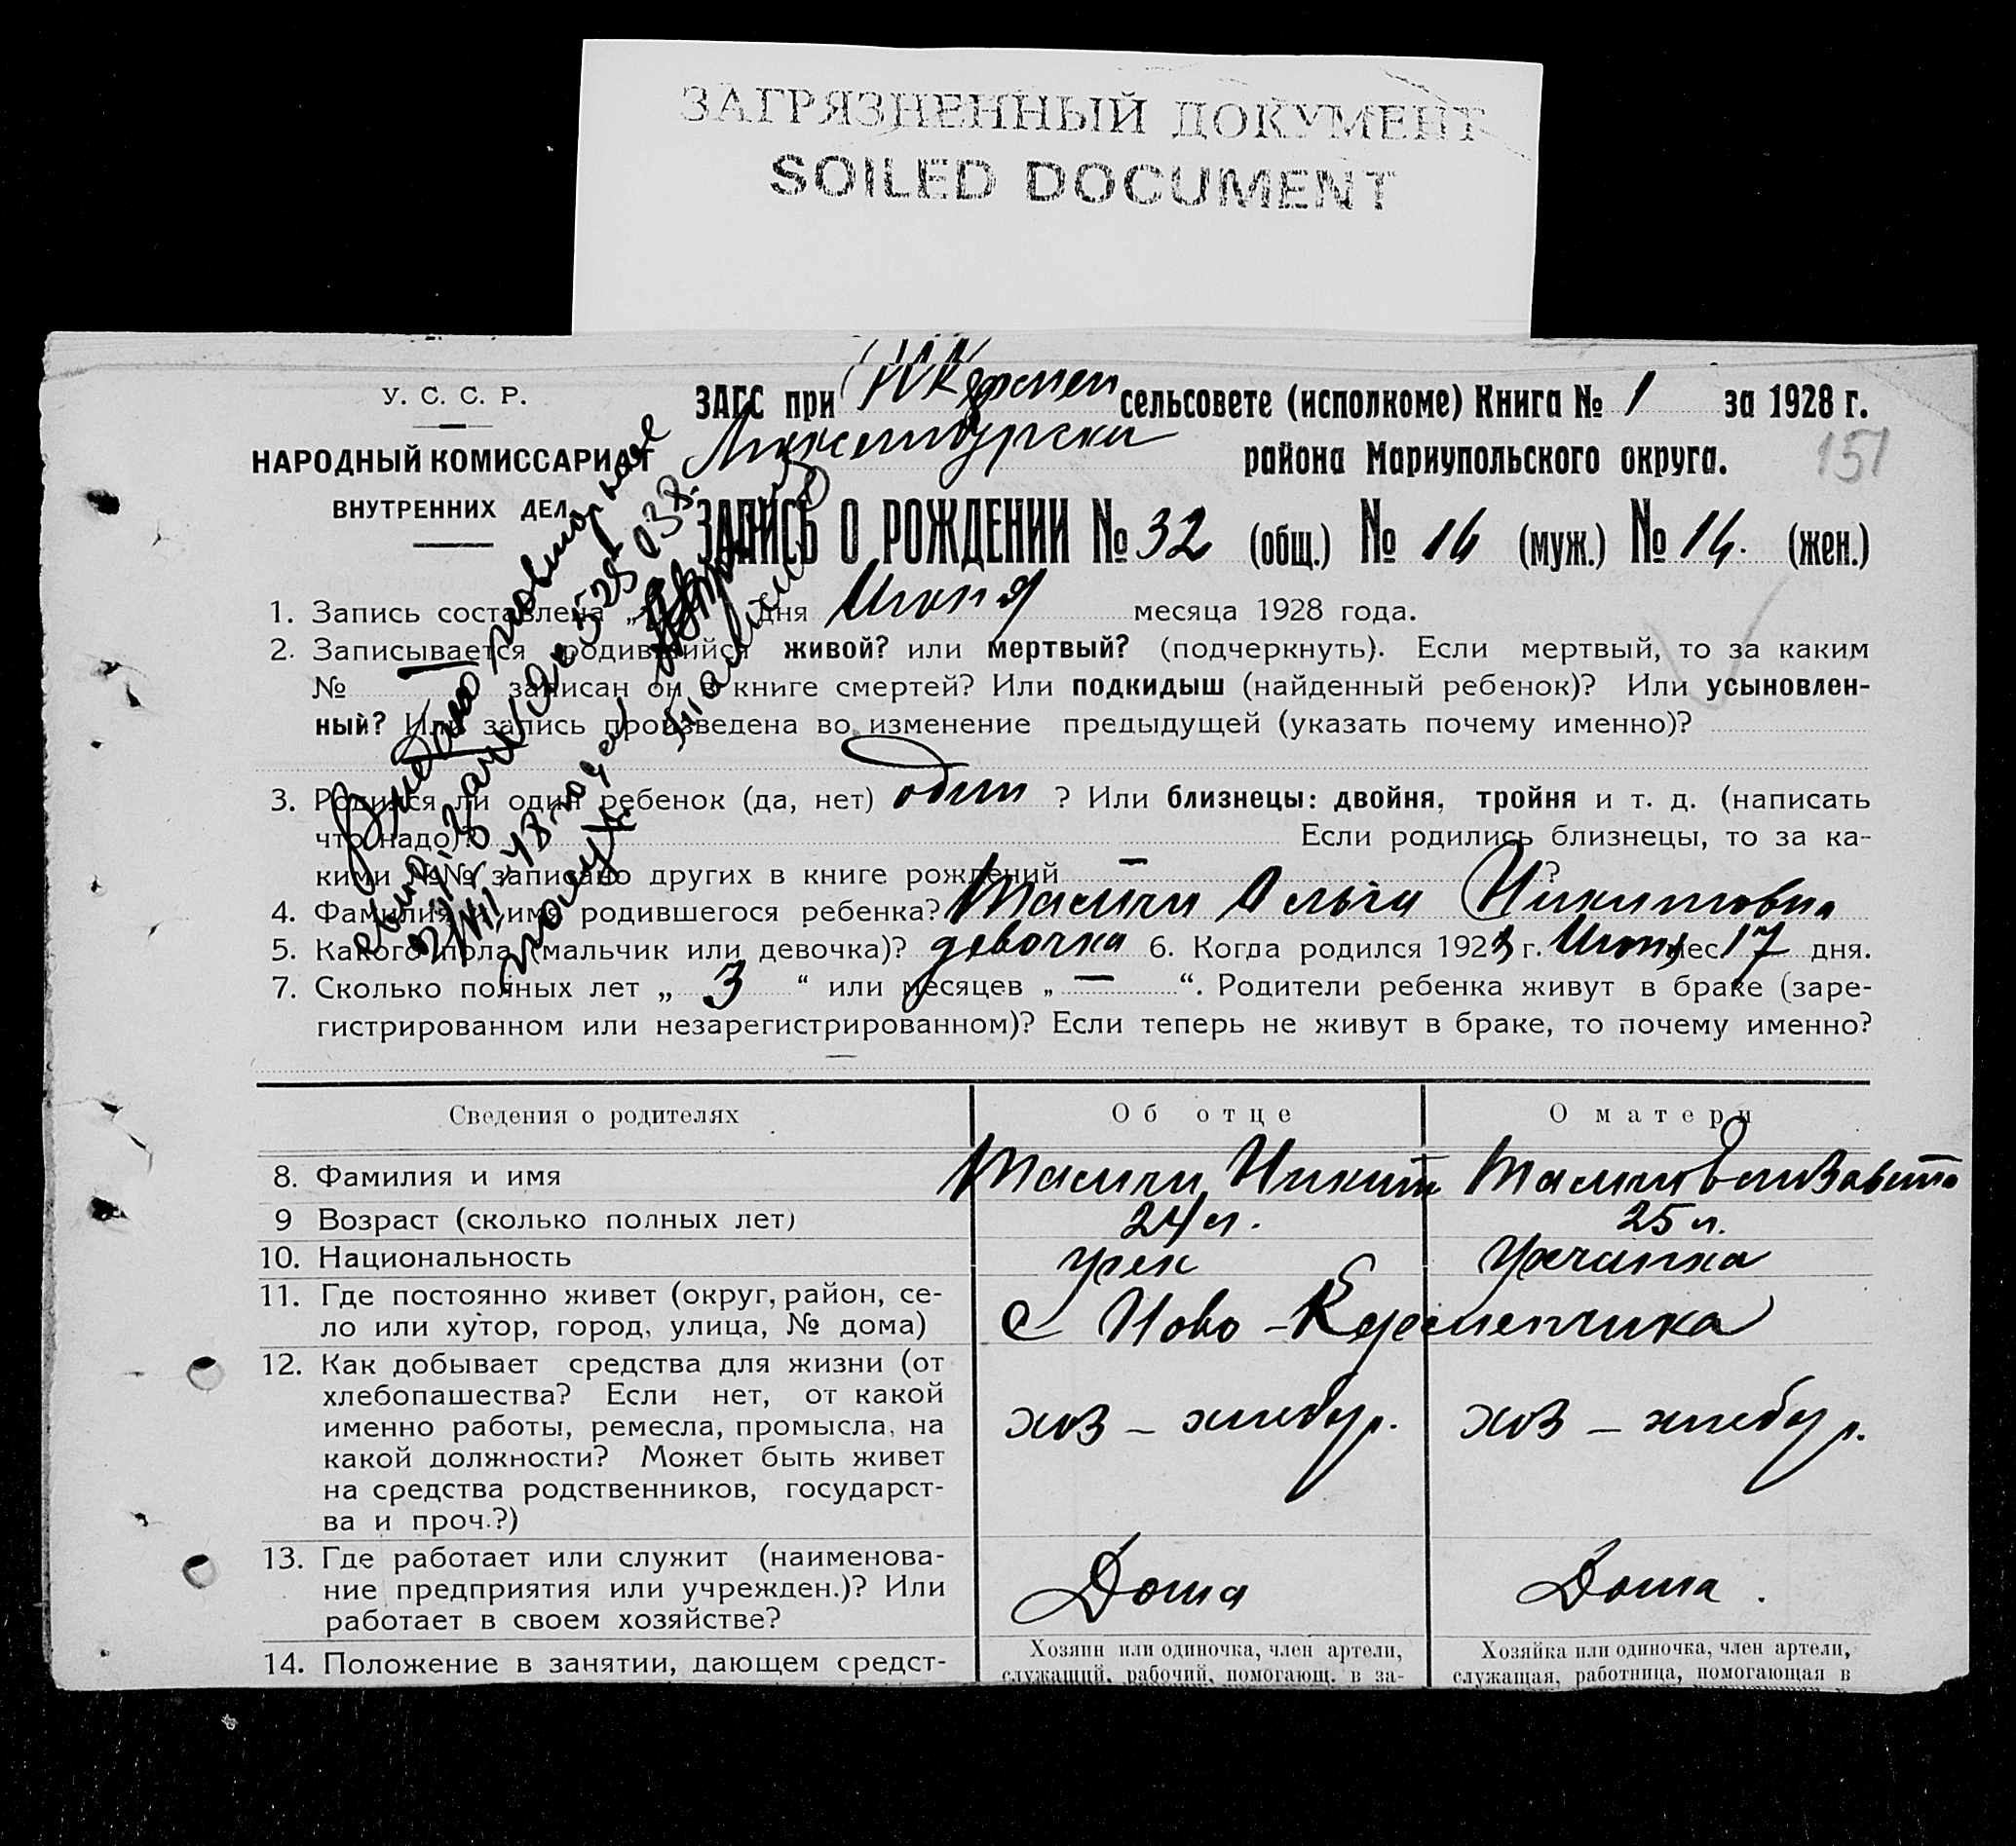 ЗАГРЯЗНЕННЫЙ ДОКУМЕНТ
SOILED DOCUMENT
У. С. С. Р.
НАРОДНЫЙ КОМИССАРИАТ
ВНУТРЕННИХ ДЕЛ
ЗАГС при сельсовете (исполкоме) Книга № 1 за 1928 г.
района Мариупольского округа.
151
ЗАПИСЬ О РОЖДЕНИИ № 32 (общ.) № 16 (муж.) № 14. (жен.)
Выдано повторное
1. Запись составлена „ дня Июня месяца 1928 года.
2. Записывается родившийся живой? или мертвый? (подчеркнуть). Если мертвый, то за каким
№ записан он в книге смертей? Или подкидыш (найденный ребенок)? Или усыновлен-
ный? Или запись произведена во изменение предыдущей (указать почему именно)?
3. Родился ли один ребенок (да, нет) один ? Или близнецы: двойня, тройня и т. д. (написать
что надо)? Если родились близнецы, то за ка-
кими №№ записано других в книге рождений — ?
4. Фамилия и имя родившегося ребенка? Ольга Никитовна
5. Какого пола (мальчик или девочка)? девочка 6. Когда родился 192 г. Июня мес 17 дня.
7. Сколько полных лет „ 3 “ или месяцев „ — “. Родители ребенка живут в браке (заре-
гистрированном или незарегистрированном)? Если теперь не живут в браке, то почему именно?
—
Сведения о родителях Об отце О матери
8. Фамилия и имя Никита Елизавета
9 Возраст (сколько полных лет) 24 л. 25 л.
10. Национальность грек гречанка
11. Где постоянно живет (округ, район, се-
ло или хутор, город, улица, № дома) с Ново-Керменчика
12. Как добывает средства для жизни (от
хлебопашества? Если нет, от какой
именно работы, ремесла, промысла, на хоз – хлебор. хоз – хлебор.
какой должности? Может быть живет
на средства родственников, государст-
ва и проч.?)
13. Где работает или служит (наименова-
ние предприятия или учрежден.)? Или Дома Дома.
работает в своем хозяйстве?
14. Положение в занятии, дающем средст- Хозяин или одиночка, член артели, Хозяйка или одиночка, член артели,
служащий, рабочий, помогающ. в за- служащая, работница, помогающая в